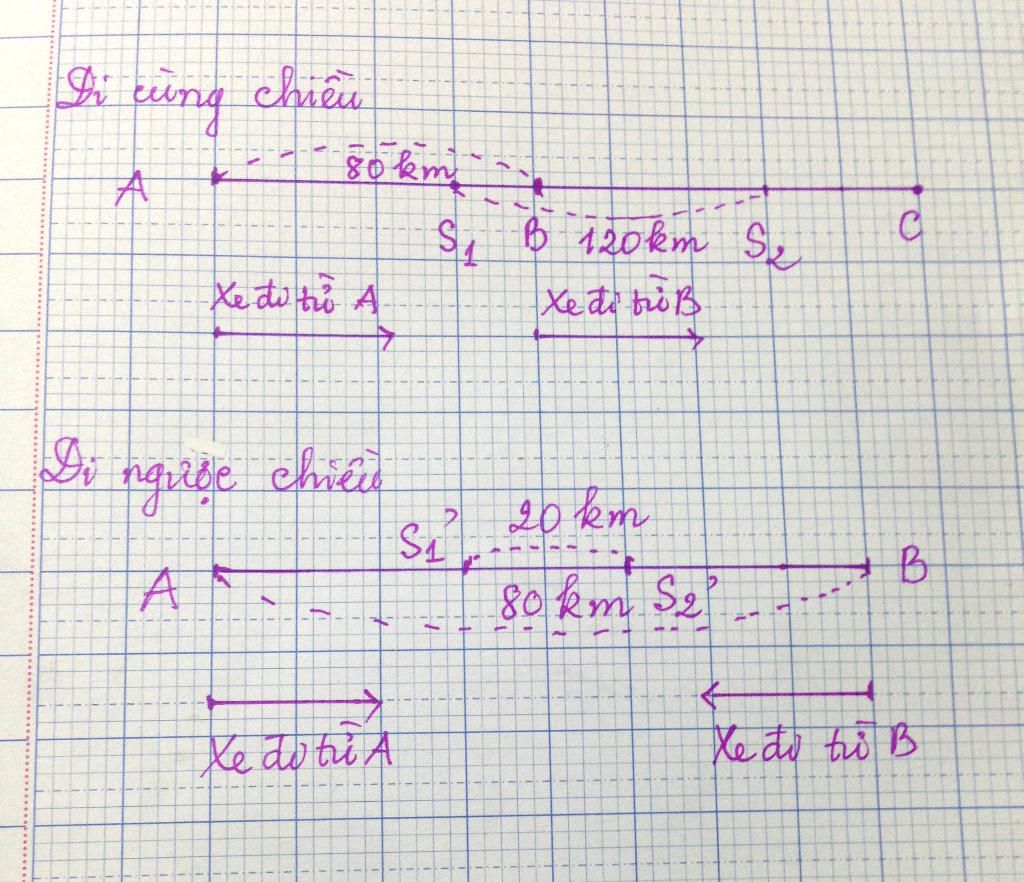 Đi cùng chiều
80 km
A S₁ B 120 km S₂ C
Xe đi từ A Xe đi từ B
Đi ngược chiều
S₁' 20 km
A 80 km S₂' B
Xe đi từ A Xe đi từ B